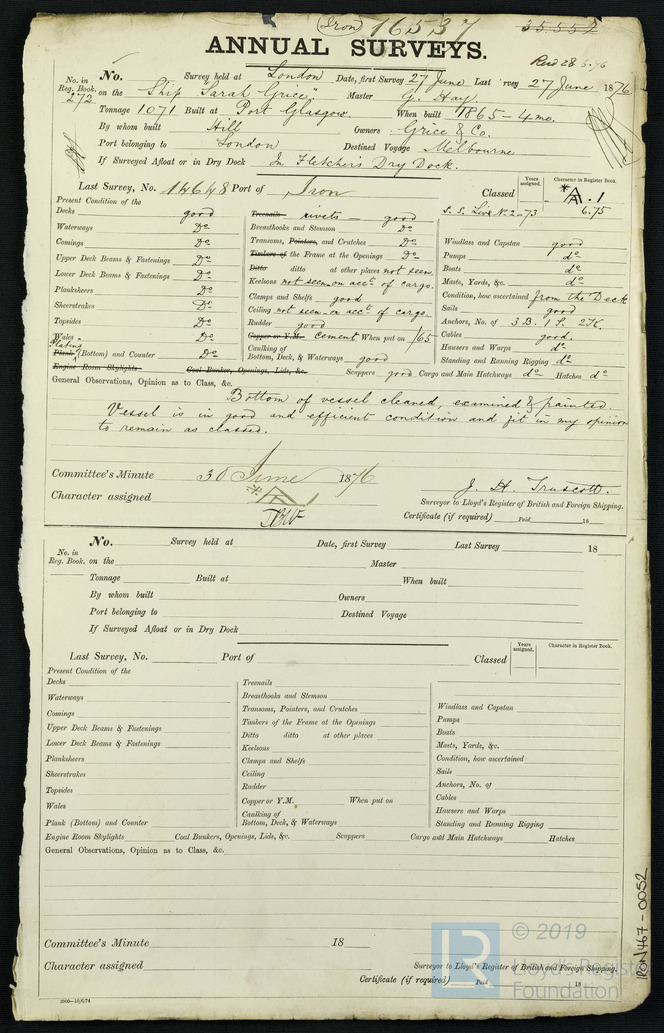 (Iron) 16537 35552
ANNUAL SURVEYS.
Recd 28.6.76
No. in Reg. Book. 272
No. Survey held at London Date, first Survey 27 June Last Survey 27 June 1876
on the Ship "Sarah Grice" Master G. Hay
Tonnage 1071 Built at Port Glasgow. When built 1865-4mo.
By whom built Hill Owners Grice & Co.
Port belonging to London Destined Voyage Melbourne
If Surveyed Afloat or in Dry Dock In Fletcher's Dry Dock.
Last Survey, No. 14648 Port of Iron Classed Years assigned. Character in Register Book. *A.1
S.S. Liv. No.2-73 6.75
Present Condition of the
Decks good
Waterways Do
Comings Do
Upper Deck Beams & Fastenings Do
Lower Deck Beams & Fastenings Do
Planksheers Do
Sheerstrakes Do
Topsides Do
Wales Do
Plating
Plank (Bottom) and Counter Do
Engine Room Skylights Coal Bunker, Openings, Lids, &c. Scuppers good Cargo and Main Hatchways do Hatches do
Treenails rivets - good
Breasthooks and Stemson Do
Transoms, Pointers, and Crutches Do
Timbers of the Frame at the Openings Do
Ditto ditto at other places not seen
Keelsons not seen on acct. of cargo.
Clamps and Shelfs good
Ceiling not seen on acct. of cargo.
Rudder good
Copper or Y.M. cement When put on /65
Caulking of Bottom, Deck, & Waterways good
Windlass and Capstan good
Pumps do
Boats do
Masts, Yards, &c. do
Condition, how ascertained from the Deck
Sails good
Anchors, No. of 3 B. 1 S. 2 K.
Cables good.
Hawsers and Warps do
Standing and Running Rigging do
General Observations, Opinion as to Class, &c.
Bottom of vessel cleaned, examined & painted.
Vessel is in good and efficient condition and fit in my opinion
to remain as classed.
Committee's Minute 30 June 1876
Character assigned *A
J. H. Truscott.
Surveyor to Lloyd's Register of British and Foreign Shipping.
Certificate (if required) Paid 18
No. Survey held at Date, first Survey Last Survey 18
No. in Reg. Book. on the Master
Tonnage Built at When built
By whom built Owners
Port belonging to Destined Voyage
If Surveyed Afloat or in Dry Dock
Last Survey, No. Port of Classed Years assigned. Character in Register Book.
Present Condition of the
Decks
Waterways
Comings
Upper Deck Beams & Fastenings
Lower Deck Beams & Fastenings
Planksheers
Sheerstrakes
Topsides
Wales
Plank (Bottom) and Counter
Treenails
Breasthooks and Stemson
Transoms, Pointers, and Crutches
Timbers of the Frame at the Openings
Ditto ditto at other places
Keelsons
Clamps and Shelfs
Ceiling
Rudder
Copper or Y.M. When put on
Caulking of Bottom, Deck, & Waterways
Windlass and Capstan
Pumps
Boats
Masts, Yards, &c.
Condition, how ascertained
Sails
Anchors, No. of
Cables
Hawsers and Warps
Standing and Running Rigging
Engine Room Skylights Coal Bunkers, Openings, Lids, &c. Scuppers Cargo and Main Hatchways Hatches
General Observations, Opinion as to Class, &c.
Committee's Minute 18
Character assigned
Surveyor to Lloyd's Register of British and Foreign Shipping.
Certificate (if required) Paid 18
IRON467-0052
LR © 2019
Lloyd's Register
Foundation